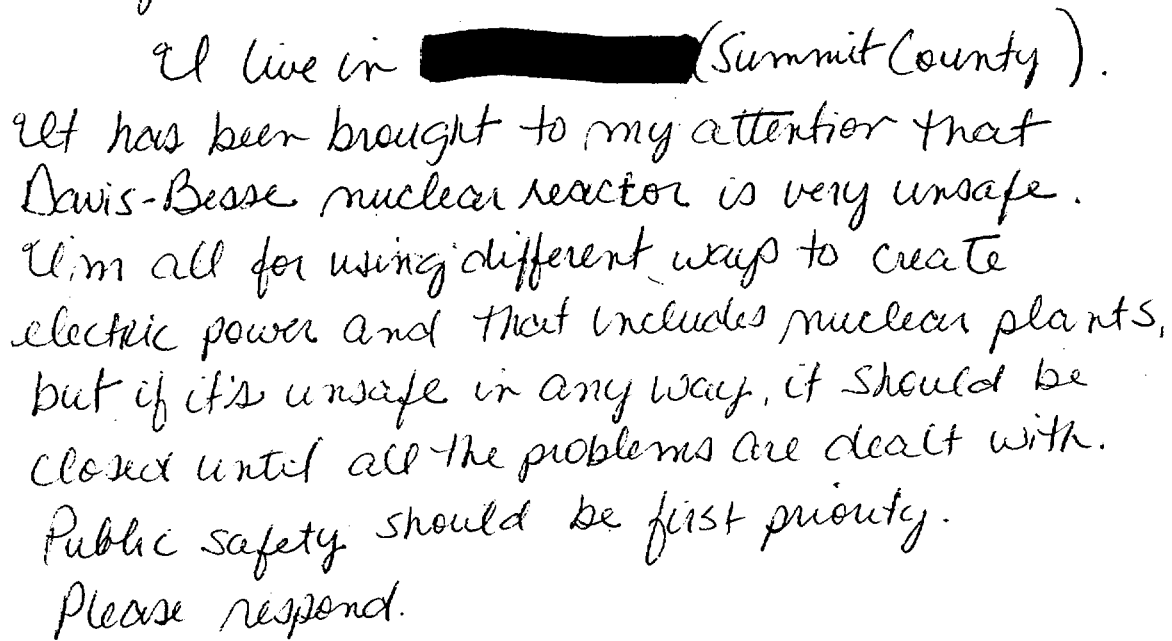 I live in (Summit County).
It has been brought to my attention that
Davis-Besse nuclear reactor is very unsafe.
I'm all for using different ways to create
electric power and that includes nuclear plants,
but if it's unsafe in any way, it should be
closed until all the problems are dealt with.
Public safety should be first priority.
Please respond.